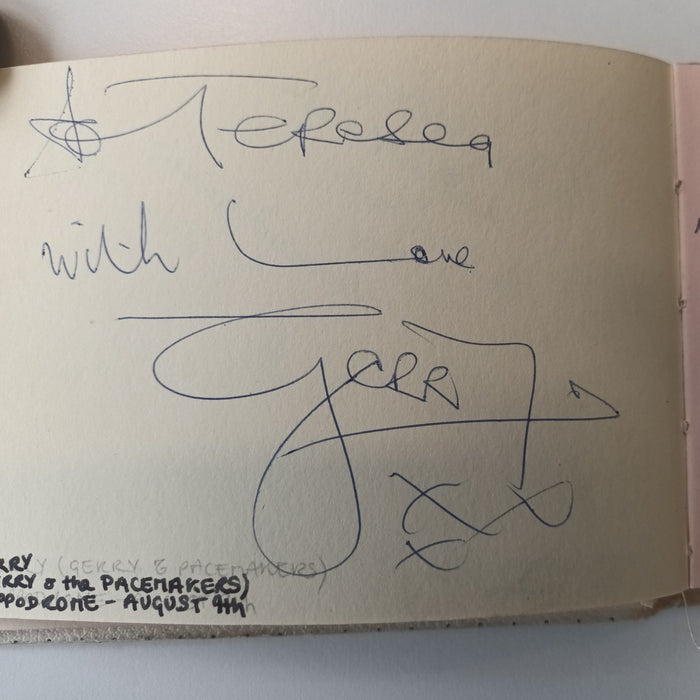 To Teresa
with Love
Gerry
xxx
Y (GERRY & PACEMAKERS)
RRY
RRY & the PACEMAKERS)
PPODROME - AUGUST 9th